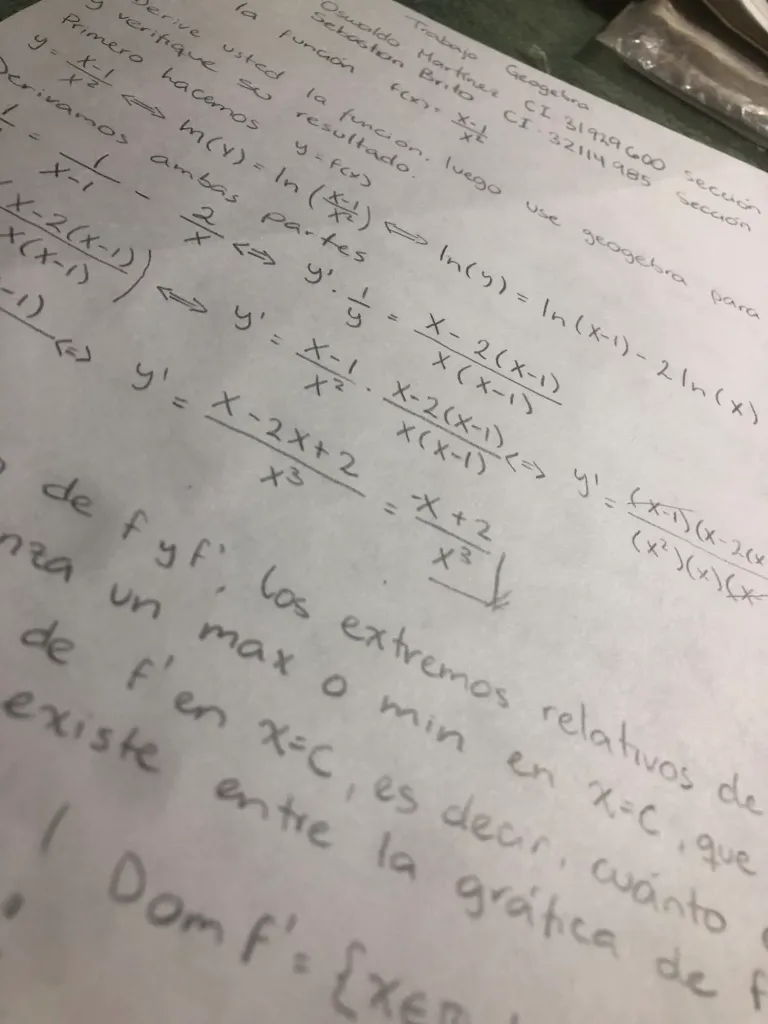 Trabajo Geogebra
Oswaldo Martínez CI. 31929600 Sección
Sebastian Brito CI. 32114985 Sección
la función f(x) = x-1/x²
Derive usted la función. luego use geogebra para
y verifique su resultado.
Primero hacemos y = f(x)
y = x-1/x² ⟺ ln(y) = ln(x-1/x²) ⟺ ln(y) = ln(x-1) - 2ln(x)
Derivamos ambas partes
= 1/x-1 - 2/x ⟺ y'·1/y = x-2(x-1)/x(x-1)
(x-2(x-1)/x(x-1)) ⟺ y' = x-1/x² · x-2(x-1)/x(x-1) ⟺ y' = (x-1)(x-2(x/(x²)(x)(x-
-1) ⟺ y' = x-2x+2/x³ = -x+2/x³
de f y f'. los extremos relativos de
un max o min en x=c, que
de f' en x=c, es decir, cuánto
existe entre la gráfica de f
Dom f' = {x∈R